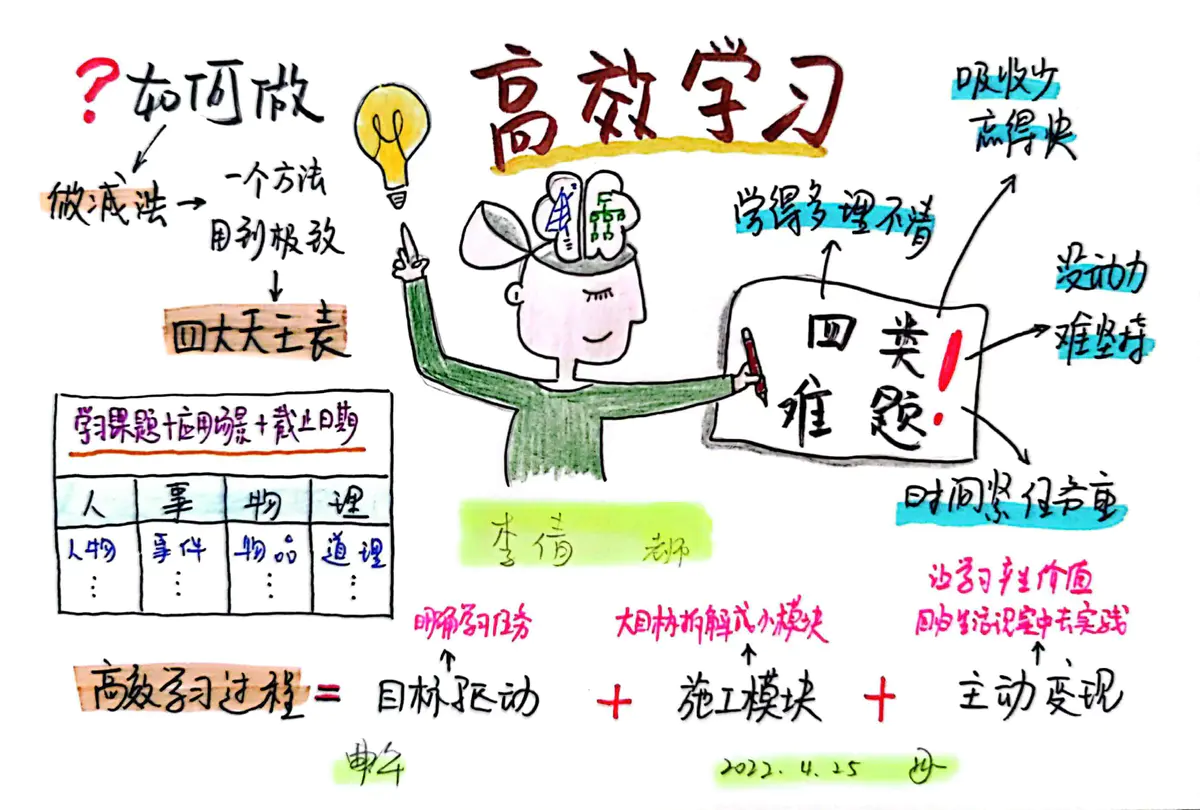 高效学习
?如何做
做减法
一个方法
用到极致
四大天王表
学习课题+应用场景+截止日期
人 事 物 理
人物 事件 物品 道理
⋮ ⋮ ⋮ ⋮
四类
难题!
学得多理不清
吸收少
忘得快
没动力
难坚持
时间紧任务重
李倩 老师
明确学习任务
大目标拆解成小模块
让学习产生价值
高效学习过程=目标驱动+施工模块+主动变现
2022.4.25